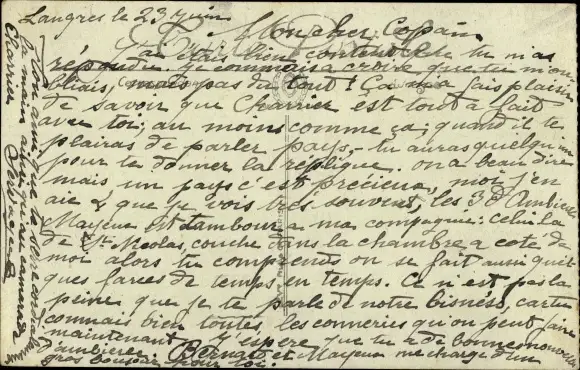 Langres le 23 juin
Mon cher Copain
J'ai étais bien content que tu m'as
répondu je commensa a croire que tu m'ou
bliais, mais pas du tout! Ça m'a fais plaisir
de savoir que Charrier est tout a fait
avec toi, au moins comme ça, quand il te
plairas de parler pays, tu auras quelqu'un
pour te donner la réplique. on a beau dire
mais un pays c'est précieux, moi j'en
aie 2 que je vois très souvent, les 3 d'Ambierle
Mayeux est tambour a ma compagnie: celui la
de St Nicolas, couche dans la chambre a coté de
moi alors tu comprends on se fait aussi quel
ques farces de temps en temps. Ce n'est pas la
peine que je te parle de notre bisness, car tu
connais bien toutes, les conneries qu'on peut faire
maintenant J'espere que tu a de bonnes nouvelles
d'ambierle. Bernard et Mayeux me charge d'un
gros bonjour pour toi.
Ton ami que te serre cordialement
la main ainsi qu'au camarade
Charrier